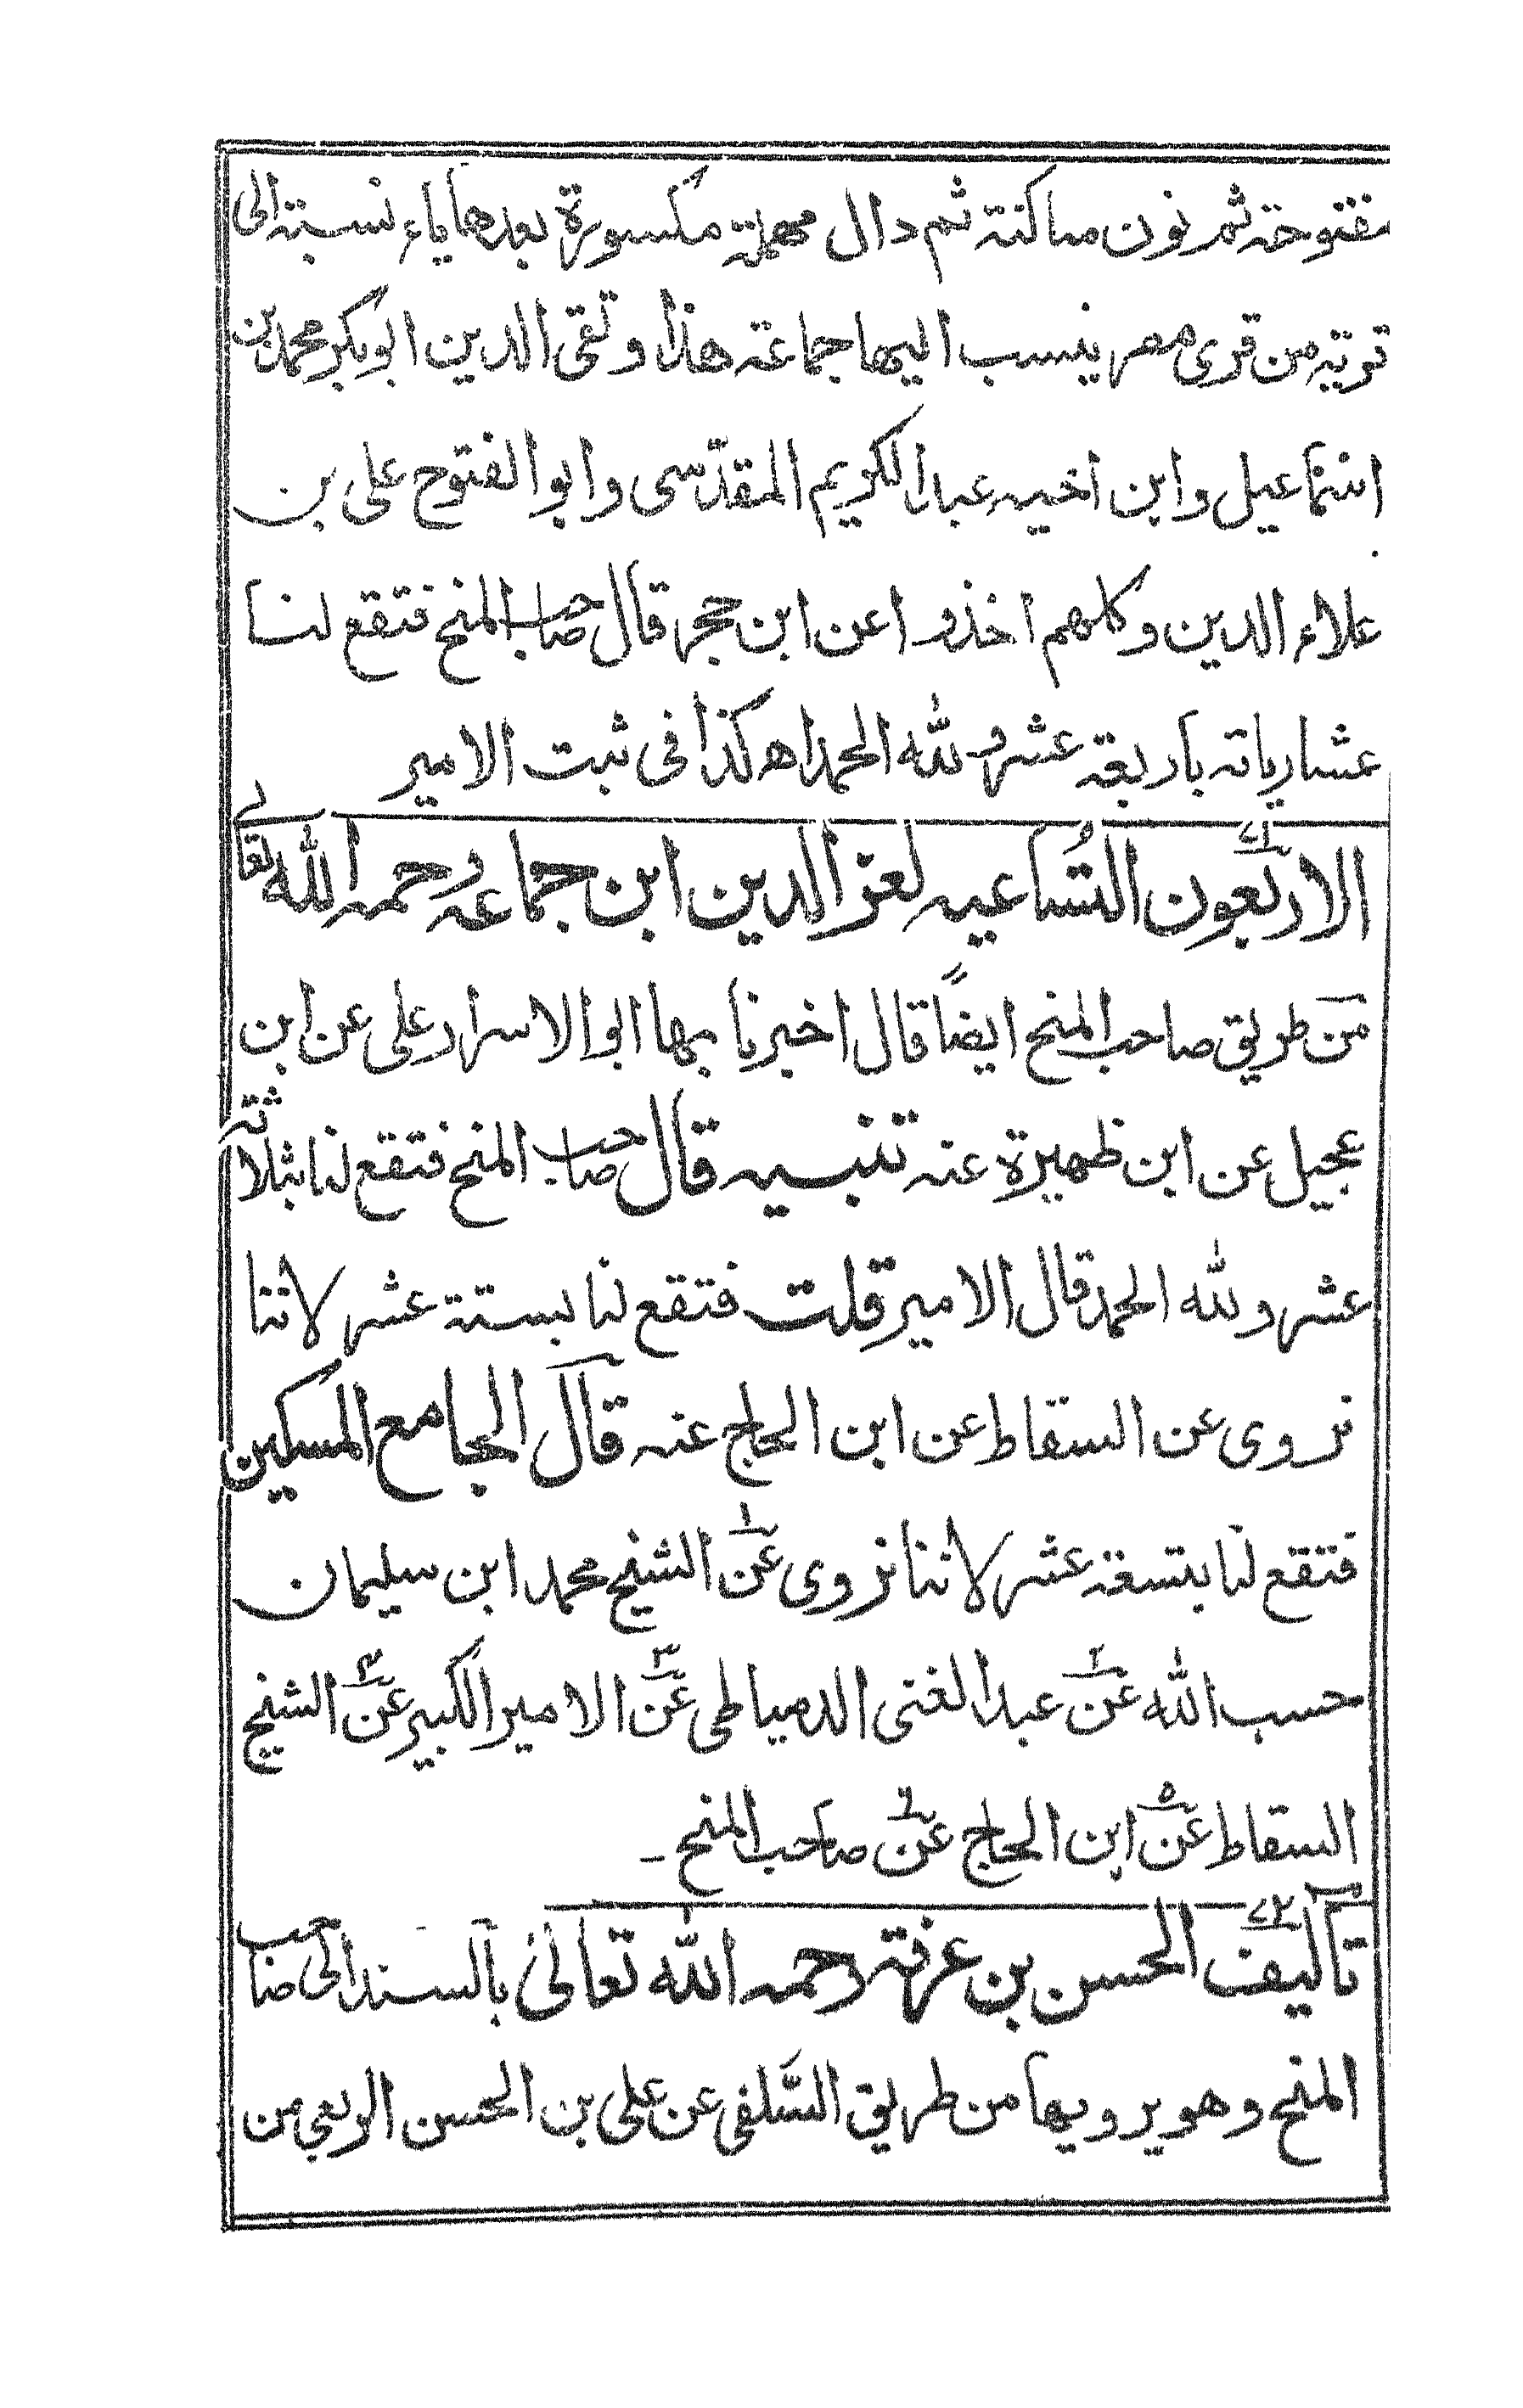 مفتوحة ثم نون ساكنة ثم دال مهملة مكسورة بعدها ياء نسبة الى
قرية من قرى مصر ينسب اليها جماعة هذا وتقى الدين ابوبكر محمد بن
اسماعيل وابن اخيه عبد الكريم المقدسى وابو الفتوح على بن
علاء الدين وكلهم اخذوا عن ابن حجر قال صاحب المنح فتقع لنا
عشارياته باربعة عشر ولله الحمد اه كذا فى ثبت الامير
الاربعون التُساعيه لعز الدين ابن جماعه رحمه الله تعالى
من طريق صاحب المنح ايضاً قال اخبرنا بها ابو الاسرار على عن ابن
عجيل عن ابن ظهيرة عنه تنبيه قال صاحب المنح فتقع لنا بثلاثة
عشر ولله الحمد قال الامير قلت فتقع لنا بستة عشر لاننا
نروى عن السقاط عن ابن الحاج عنه قال الجامع المسكين
فتقع لنا بتسعة عشر لاننا نروى عن١ الشيخ محمد ابن سليمان
حسب الله عن٢ عبد الغنى الدمياطى عن٣ الامير الكبير عن٤ الشيخ
السقاط عن٥ ابن الحاج عن٦ صاحب المنح ۔
تآليف الحسن بن عرفة رحمه الله تعالى بالسند الى صاحب
المنح وهو يرويها من طريق السّلفى عن على بن الحسن الربعي من